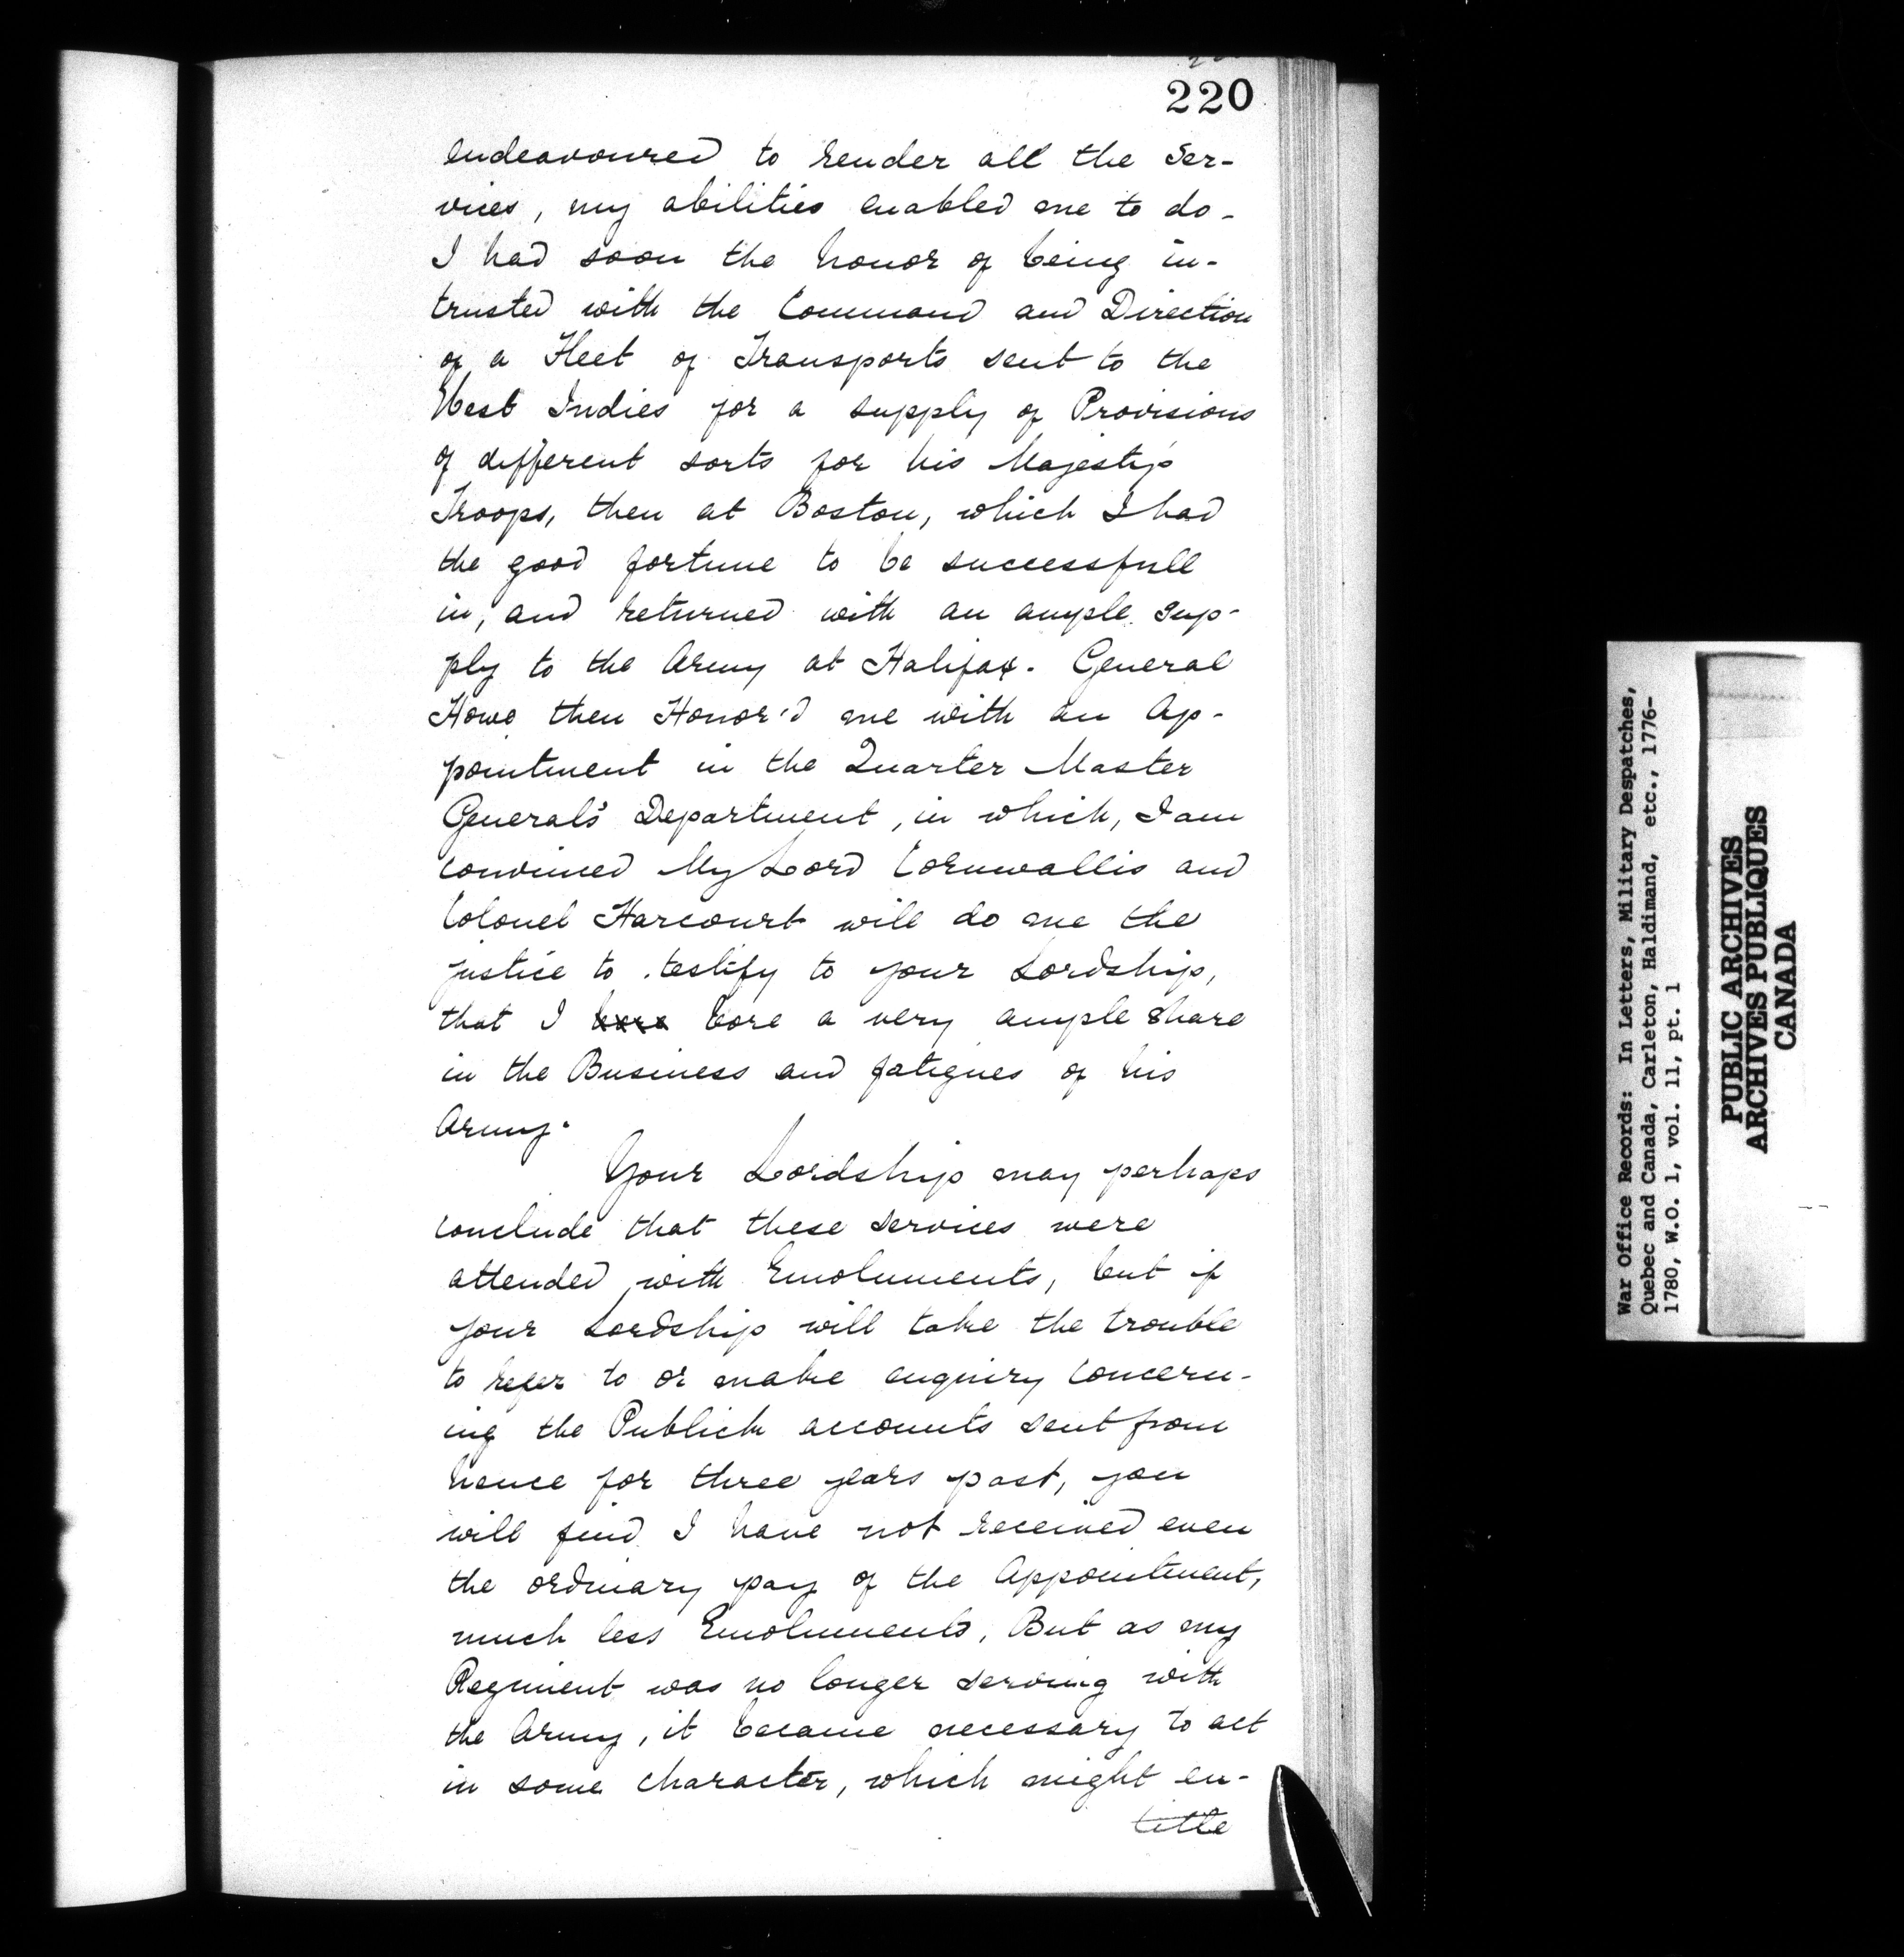 220
endeavoured to render all the Ser-
vices, my abilities enabled me to do-
I had soon the honor of being in-
trusted with the Command and Direction
of a Fleet of Transports sent to the
West Indies for a supply of Provisions
of different sorts for his Majesty's
Troops, then at Boston, which I had
the good fortune to be successfull
in, and returned with an ample Sup-
ply to the Army at Halifax. General
Howe then Honor'd me with an Ap-
pointment in the Quarter Master
General's Department, in which, I am
convinced My Lord Cornwallis and
Colonel Harcourt will do me the
justice to testify to your Lordship,
that I bore bore a very ample share
in the Business and fatigues of his
Army.
Your Lordship may perhaps
conclude that these services were
attended with Emoluments, but if
your Lordship will take the trouble
to refer to or make enquiry concern-
ing the Publick accounts sent from
hence for three years past, you
will find I have not received even
the ordinary pay of the Appointment,
much less Emoluments, But as my
Regiment was no longer serving with
the Army, it became necessary to act
in some character, which might en-
title
War Office Records: In Letters, Military Despatches,
Quebec and Canada, Carleton, Haldimand, etc., 1776-
1780, W.O. 1, vol. 11, pt. 1
PUBLIC ARCHIVES
ARCHIVES PUBLIQUES
CANADA